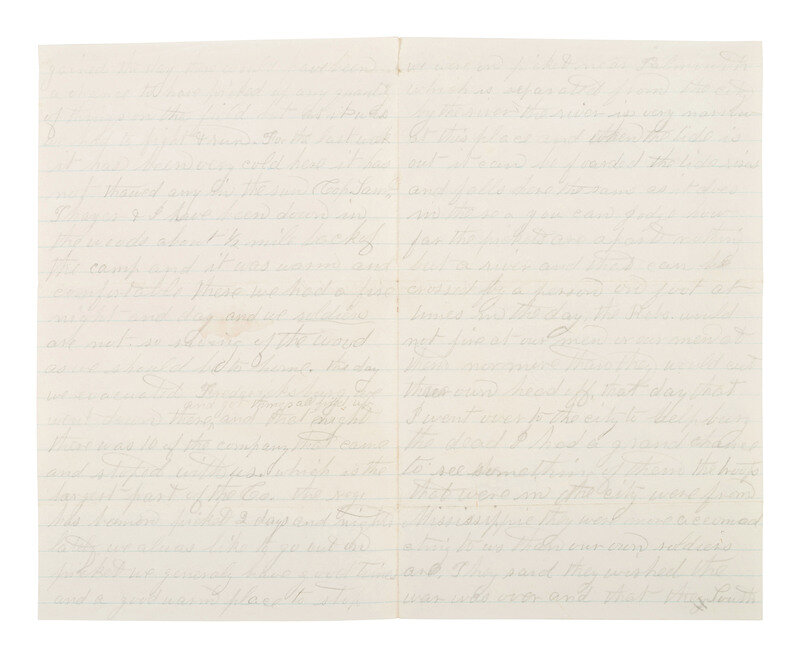 gained the day then would have been
a chance to have picked of any quanty
of things on the field but as it was
to fight & run. For the last week
it has been very cold here it has
not thawed any in the sun
& I have been down in
the woods about ½ mile back of
the camp and it was warm and
comfortable there we had a fire
night and day and we soldiers
are not so saving of the wood
as we should be to home. the day
we evacuated we
went down there, and that night
there was 10 of the company that came
and stayed with us. which is the
largest part of the Co. the regt
has been on picket 2 days and nights
lately we alwas like to go out on
picket we generaly have good times
and a good warm place to stop
we were on picket near Falmouth
which is separated from the city
by the river the river is very narrow
at this place and when the tide is
out it can be foarded the tide rises
and falls here the same as it does
in the sea you can judge how
far the pickets are apart nothing
but a river and that can be
crossed by a person on foot at
times in the day, the Rebs. would
not fire at our men or our men at
them no more than they would cut
their own head off, that day that
I went over to the city to help bury
the dead I had a grand chance
to see something of them the troops
that were in the city were from
Mississippi they were more accomad
ating to us than our own soldiers
are. They said they wished the
war was over and that the South